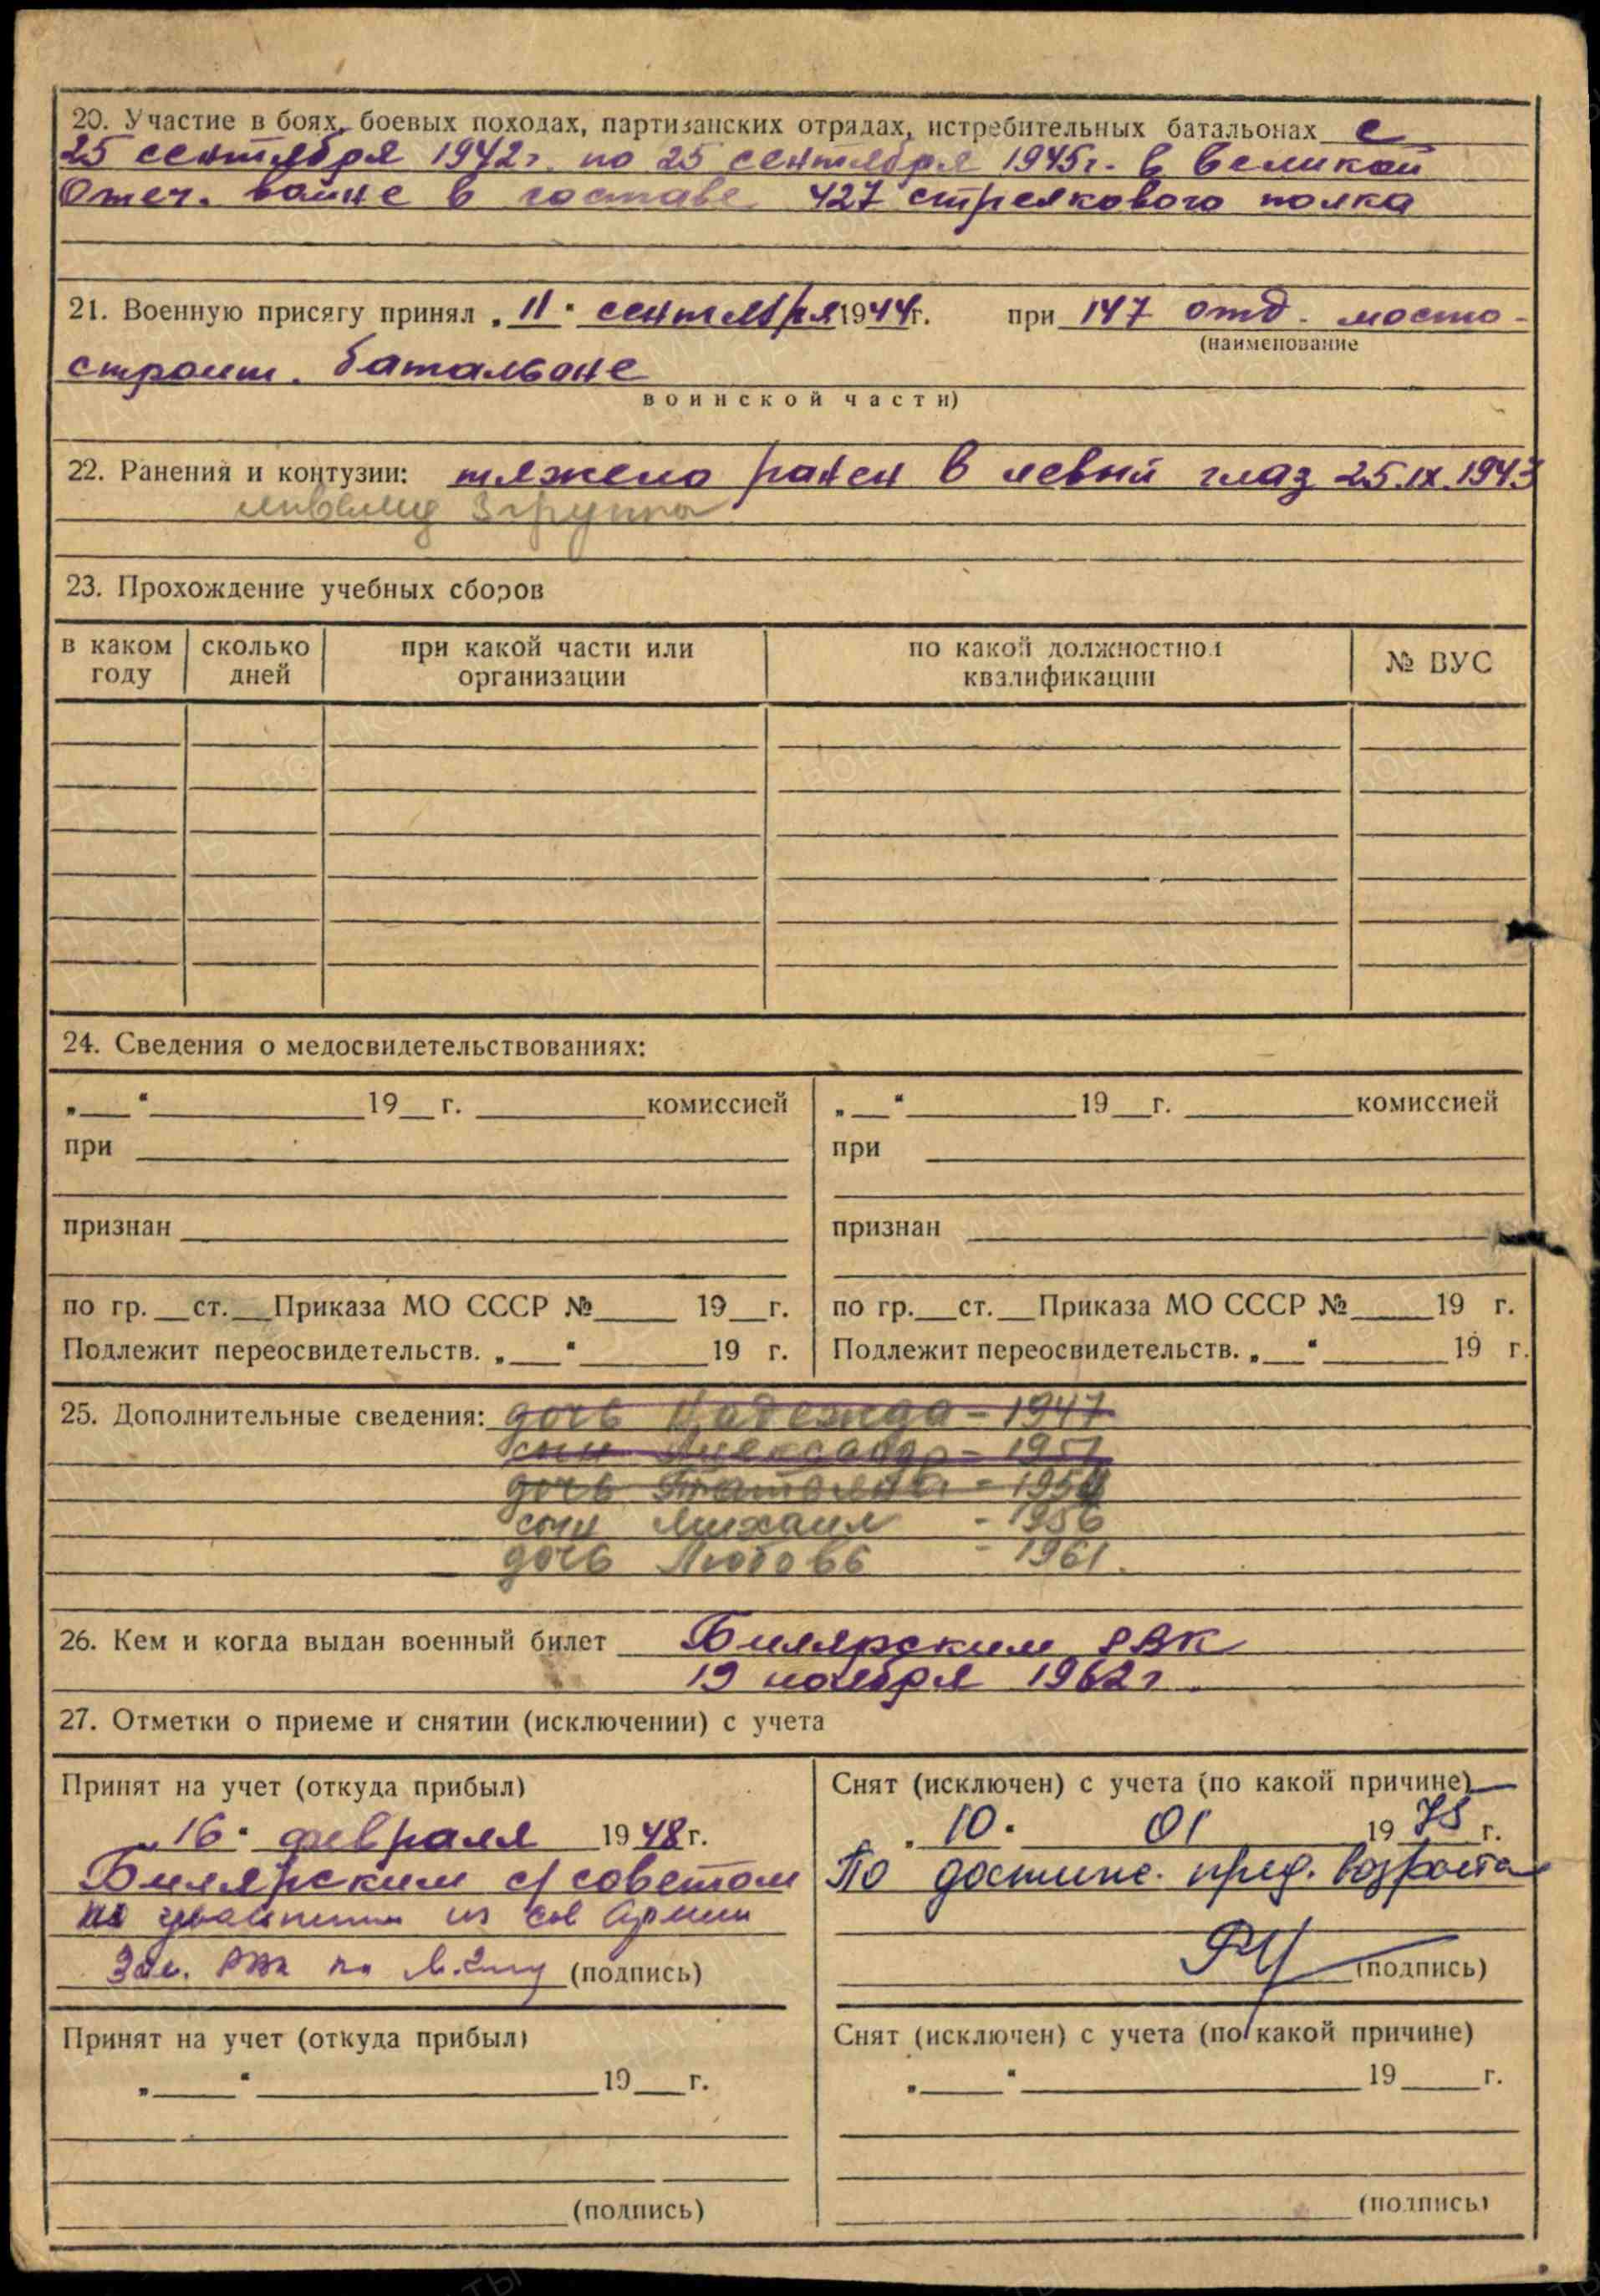 20. Участие в боях, боевых походах, партизанских отрядах, истребительных батальонах с
25 сентября 1942г. по 25 сентября 1945г. в Великой
Отеч. войне в составе 427 стрелкового полка
21. Военную присягу принял „11“ сентября 1944г. при 147 отд. мосто-
(наименование
строит. батальоне
воинской части)
22. Ранения и контузии: тяжело ранен в левый глаз 25.IX.1943
инвалид 3 группы
23. Прохождение учебных сборов
в каком году | сколько дней | при какой части или организации | по какой должностной квалификации | № ВУС
24. Сведения о медосвидетельствованиях:
„ “ 19 г. комиссией „ “ 19 г. комиссией
при при
признан признан
по гр. ст. Приказа МО СССР № 19 г. по гр. ст. Приказа МО СССР № 19 г.
Подлежит переосвидетельств. „ “ 19 г. Подлежит переосвидетельств. „ “ 19 г.
25. Дополнительные сведения: дочь Надежда - 1947
сын Александр - 1951
дочь - 1954
сын Михаил - 1956
дочь Любовь - 1961.
26. Кем и когда выдан военный билет Билярским РВК
19 ноября 1962г.
27. Отметки о приеме и снятии (исключении) с учета
Принят на учет (откуда прибыл)
„16“ февраля 1948г.
Билярским с/советом
из сов Армии
Зам. РВК по (подпись)
Снят (исключен) с учета (по какой причине)
„10“ 01 1975 г.
По достиж. пред. возраста
(подпись)
Принят на учет (откуда прибыл)
„ “ 19 г.
(подпись)
Снят (исключен) с учета (по какой причине)
„ “ 19 г.
(подпись)